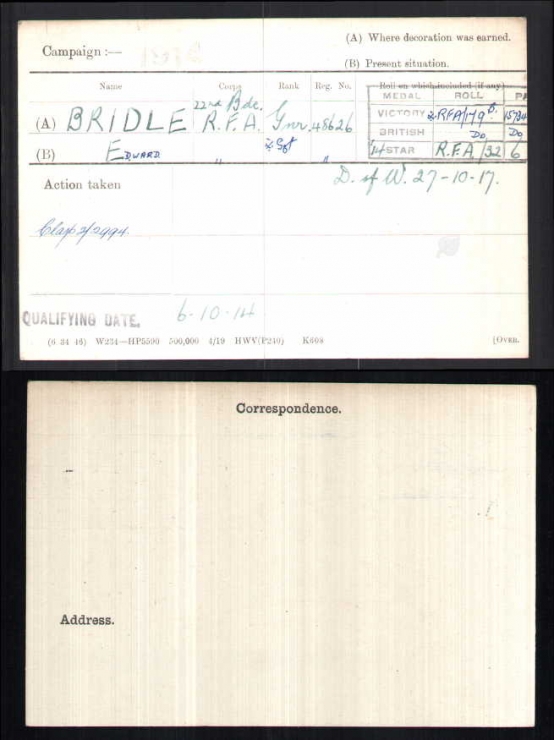 (A) Where decoration was earned.
Campaign :—
(B) Present situation.
Name Corps Rank Reg. No. Roll on which included (if any)
MEDAL ROLL PA
22nd Bde.
(A) BRIDLE R.F.A. Gnr. 48626
VICTORY RFA/179B 15734
BRITISH Do Do
(B) EDWARD " Sgt "
14 STAR R.F.A. 32 6
Action taken
D. of W. 27-10-17.
Clasp 2/2494
QUALIFYING DATE. 6-10-14
(6 34 46) W234—HP5500 500,000 4/19 HWV(P240) K608 [OVER.
Correspondence.
Address.